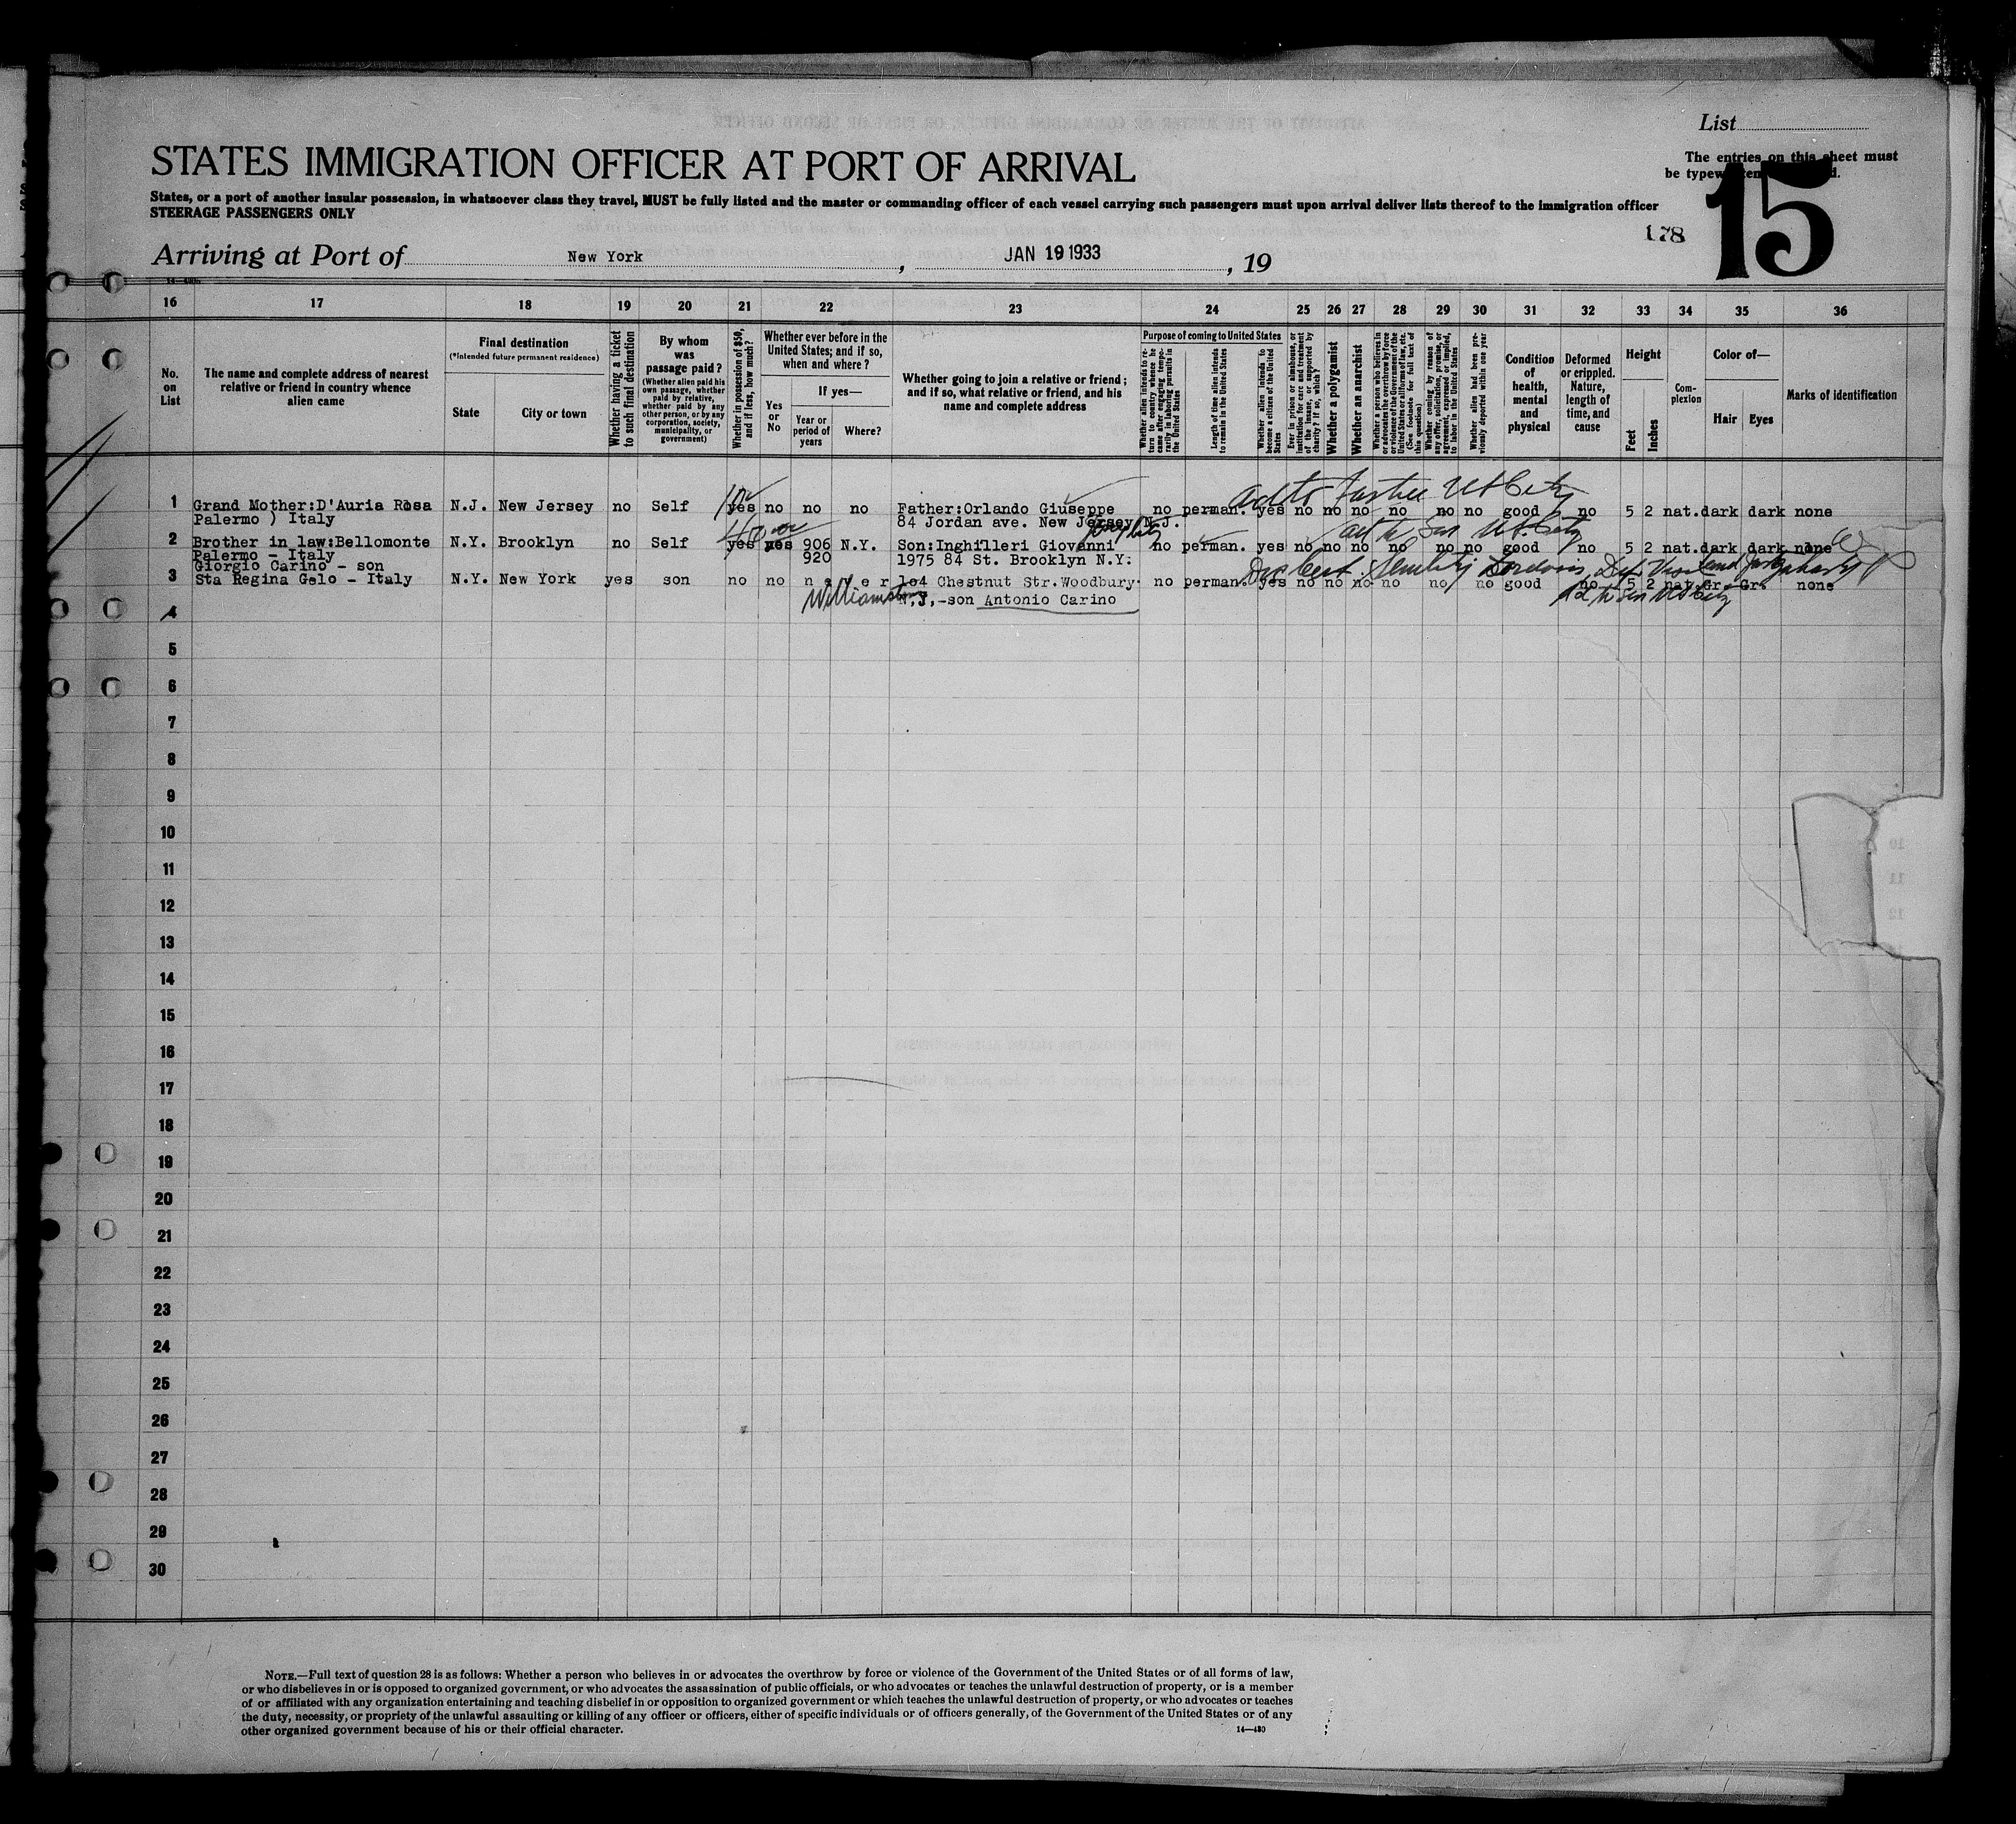 List
STATES IMMIGRATION OFFICER AT PORT OF ARRIVAL
The entries on this sheet must
be typewritten
15
States, or a port of another insular possession, in whatsoever class they travel, MUST be fully listed and the master or commanding officer of each vessel carrying such passengers must upon arrival deliver lists thereof to the immigration officer
STEERAGE PASSENGERS ONLY
178
Arriving at Port of New York, JAN 19 1933, 19
16 17 18 19 20 21 22 23 24 25 26 27 28 29 30 31 32 33 34 35 36
No. on List
The name and complete address of nearest relative or friend in country whence alien came
Final destination
(*Intended future permanent residence)
State
City or town
Whether having a ticket to such final destination
By whom was passage paid?
(Whether alien paid his own passage, whether paid by relative, whether paid by any other person, or by any corporation, society, municipality, or government)
Whether in possession of $50, and if less, how much?
Whether ever before in the United States; and if so, when and where?
Yes or No
If yes—
Year or period of years
Where?
Whether going to join a relative or friend; and if so, what relative or friend, and his name and complete address
Purpose of coming to United States
Whether alien intends to return to country whence he came after engaging temporarily in laboring pursuits in the United States
Length of time alien intends to remain in the United States
Whether alien intends to become a citizen of the United States
Ever in prison or almshouse, or institution for care and treatment of the insane, or supported by charity? If so, which?
Whether a polygamist
Whether an anarchist
Whether a person who believes in or advocates the overthrow by force or violence of the Government of the United States or all forms of law, etc. (See footnote for full text of this question)
Whether coming by reason of any offer, solicitation, promise, or agreement, expressed or implied, to labor in the United States
Whether alien had been previously deported within one year
Condition of health, mental and physical
Deformed or crippled. Nature, length of time, and cause
Height
Feet
Inches
Complexion
Color of—
Hair
Eyes
Marks of identification
1 Grand Mother:D'Auria Rosa N.J. New Jersey no Self yes no no no Father:Orlando Giuseppe no perman. yes no no no no no no good no 5 2 nat. dark dark none
Palermo ) Italy 84 Jordan ave. New Jersey N.J.
2 Brother in law:Bellomonte N.Y. Brooklyn no Self yes yes 906 N.Y. Son:Inghilleri Giovanni no perman. yes no no no no no no good no 5 2 nat. dark dark none
Palermo - Italy 920 1975 84 St. Brooklyn N.Y:
Giorgio Carino - son
3 Sta Regina Gelo - Italy N.Y. New York yes son no no never 104 Chestnut Str. Woodbury. no perman. yes no no no no no no good no 5 2 nat. Gr. Gr. none
Williamstown N.J.-son Antonio Carino
4
5
6
7
8
9
10
11
12
13
14
15
16
17
18
19
20
21
22
23
24
25
26
27
28
29
30
NOTE.—Full text of question 28 is as follows: Whether a person who believes in or advocates the overthrow by force or violence of the Government of the United States or of all forms of law,
or who disbelieves in or is opposed to organized government, or who advocates the assassination of public officials, or who advocates or teaches the unlawful destruction of property, or is a member
of or affiliated with any organization entertaining and teaching disbelief in or opposition to organized government or which teaches the unlawful destruction of property, or who advocates or teaches
the duty, necessity, or propriety of the unlawful assaulting or killing of any officer or officers, either of specific individuals or of officers generally, of the Government of the United States or of any
other organized government because of his or their official character.
14—480